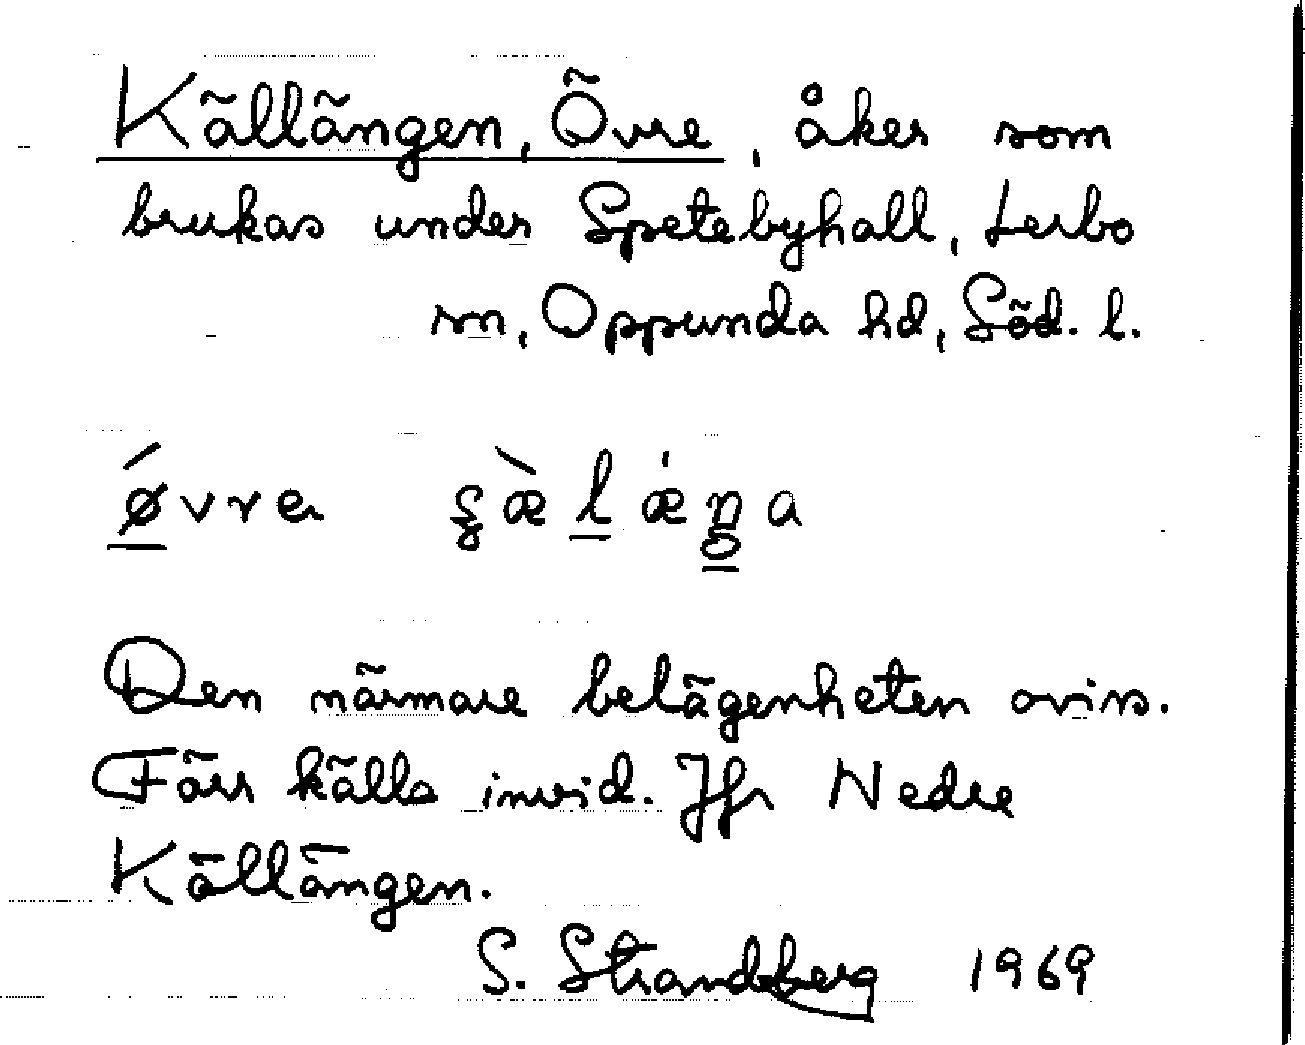 Källängen, Övre, åker som
brukas under Spetebyhall, Lerbo
sn, Oppunda hd, Söd. l.
ǿvrɐ
Den närmare belägenheten oviss.
Förr källa invid. Jfr Nedre
Källängen.
S. Strandberg 1969